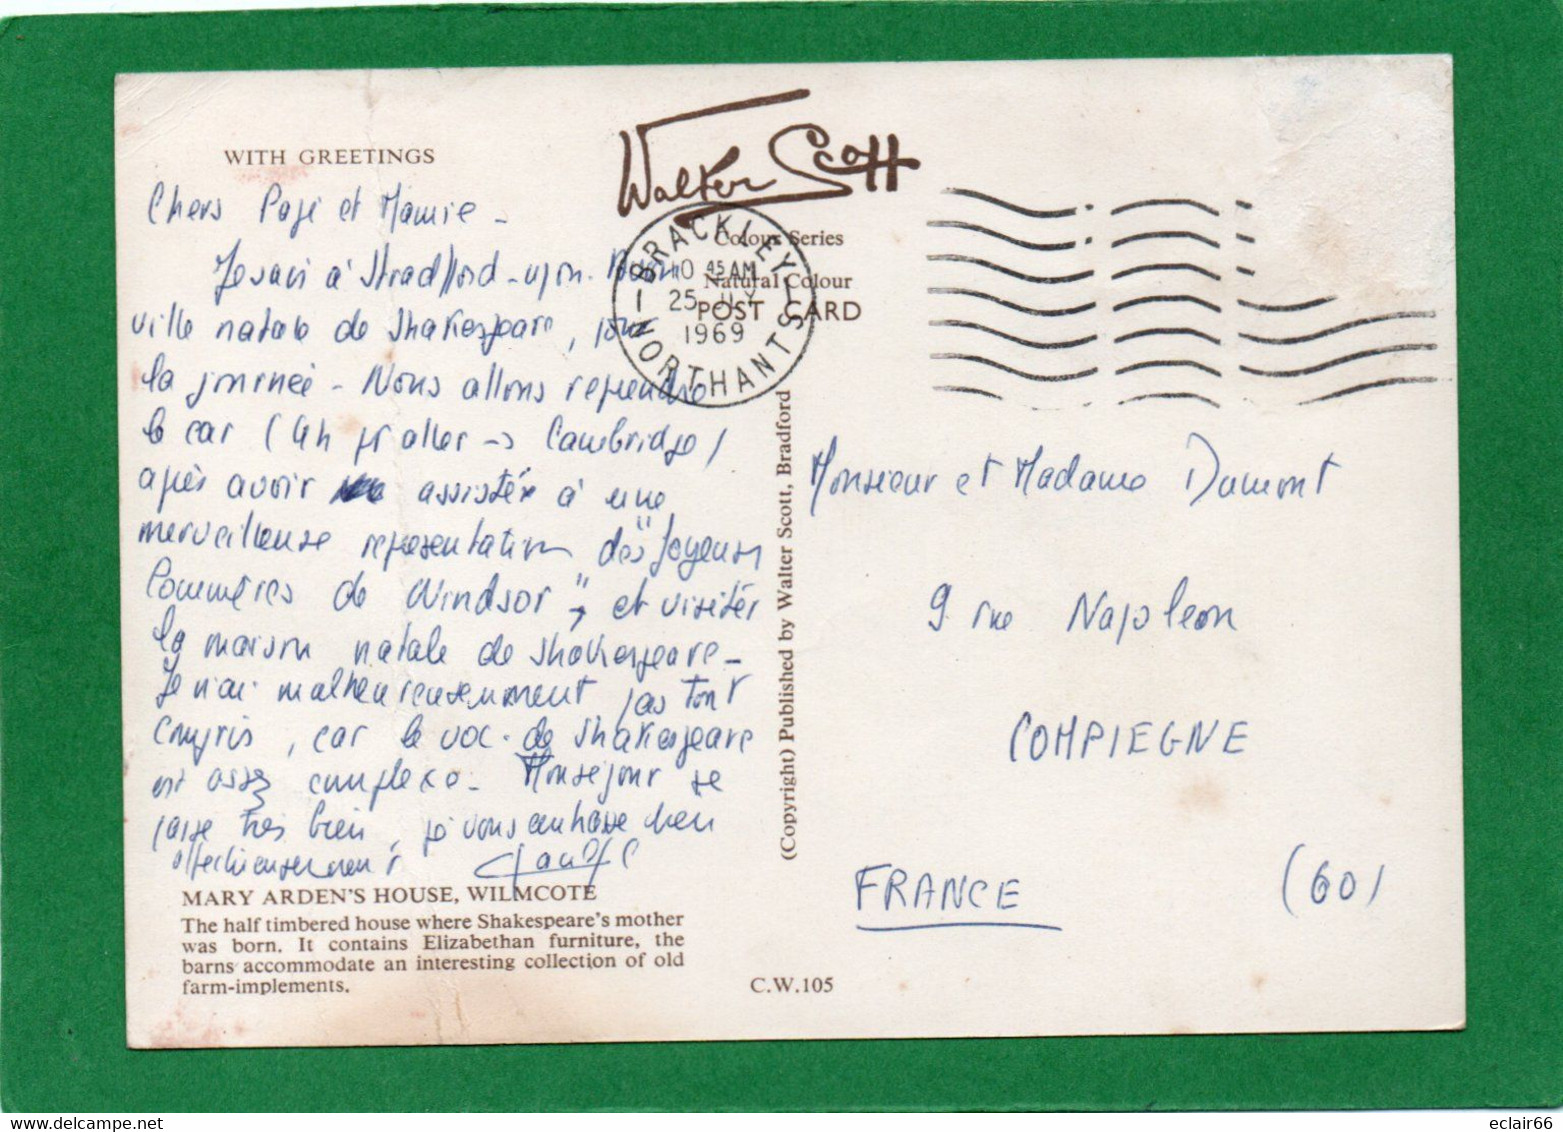 WITH GREETINGS
Walter Scott
Colour Series
Natural Colour
POST CARD
BRACKLEY
10 45 AM
25 JLY
1969
NORTHANTS
Chers Papi et Mamie -
Je suis à Stradfford-upon-
ville natale de Shakespeare, pour
la journée - Nous allons reprendre
le car (4h pr aller -> Cambridge)
après avoir assister à une
merveilleuse representation des "Joyeuses
Commères de Windsor", et visiter
la maison natale de Shakespeare -
Je n'ai malheureusement pas tout
compris, car le voc. de Shakespeare
est assez complexe - Mon sejour se
passe très bien, je vous embrasse bien
affectueusement
MARY ARDEN'S HOUSE, WILMCOTE
The half timbered house where Shakespeare's mother
was born. It contains Elizabethan furniture, the
barns accommodate an interesting collection of old
farm-implements.
C.W.105
(Copyright) Published by Walter Scott, Bradford
Monsieur et Madame Dumont
9 rue Napoleon
COMPIEGNE
FRANCE (60)
delcampe.net
eclair66